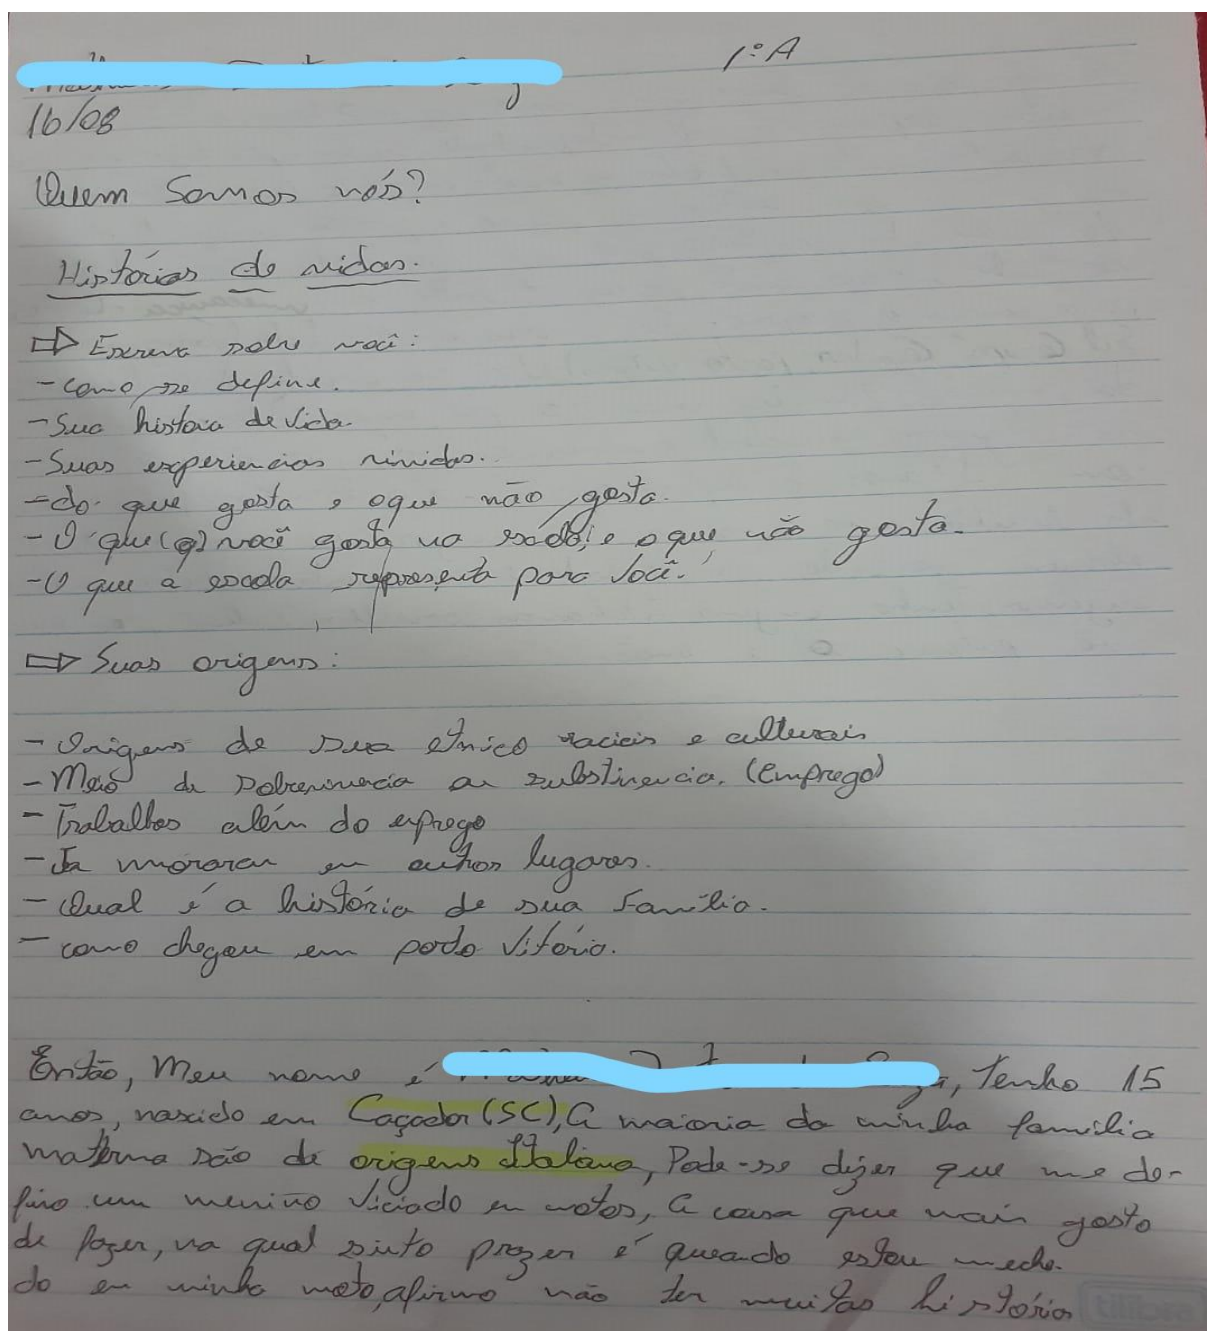 1º A
16/08
Quem Somos nós?
Histórias de vidas.
Escreva sobre você:
- Como se define.
- Sua histoia de vida.
- Suas experiencias vividas.
- do que gosta e oque não gosta.
- O que (q) você gosta na escola, e o que não gosta.
- O que a escola representa para você.
Suas origens:
- Origens de sua etnico raciais e culturais
- Meio de sobrevivencia ou substinencia. (Emprego)
- Trabalhos além do eprego
- Ja moraram em outros lugares.
- Qual é a história de sua Família.
- como chegou em porto Vitória.
Então, Meu nome é , Tenho 15
anos, nascido em Caçador (SC), A maioria da minha família
materna são de origens Italiana, Pode-se dizer que me de-
fino um menino viciado em motos, A coisa que mais gosto
de fazer, na qual sinto prazer é queando estou meche-
do em minha moto, afirmo não ter muitas história
tilibra